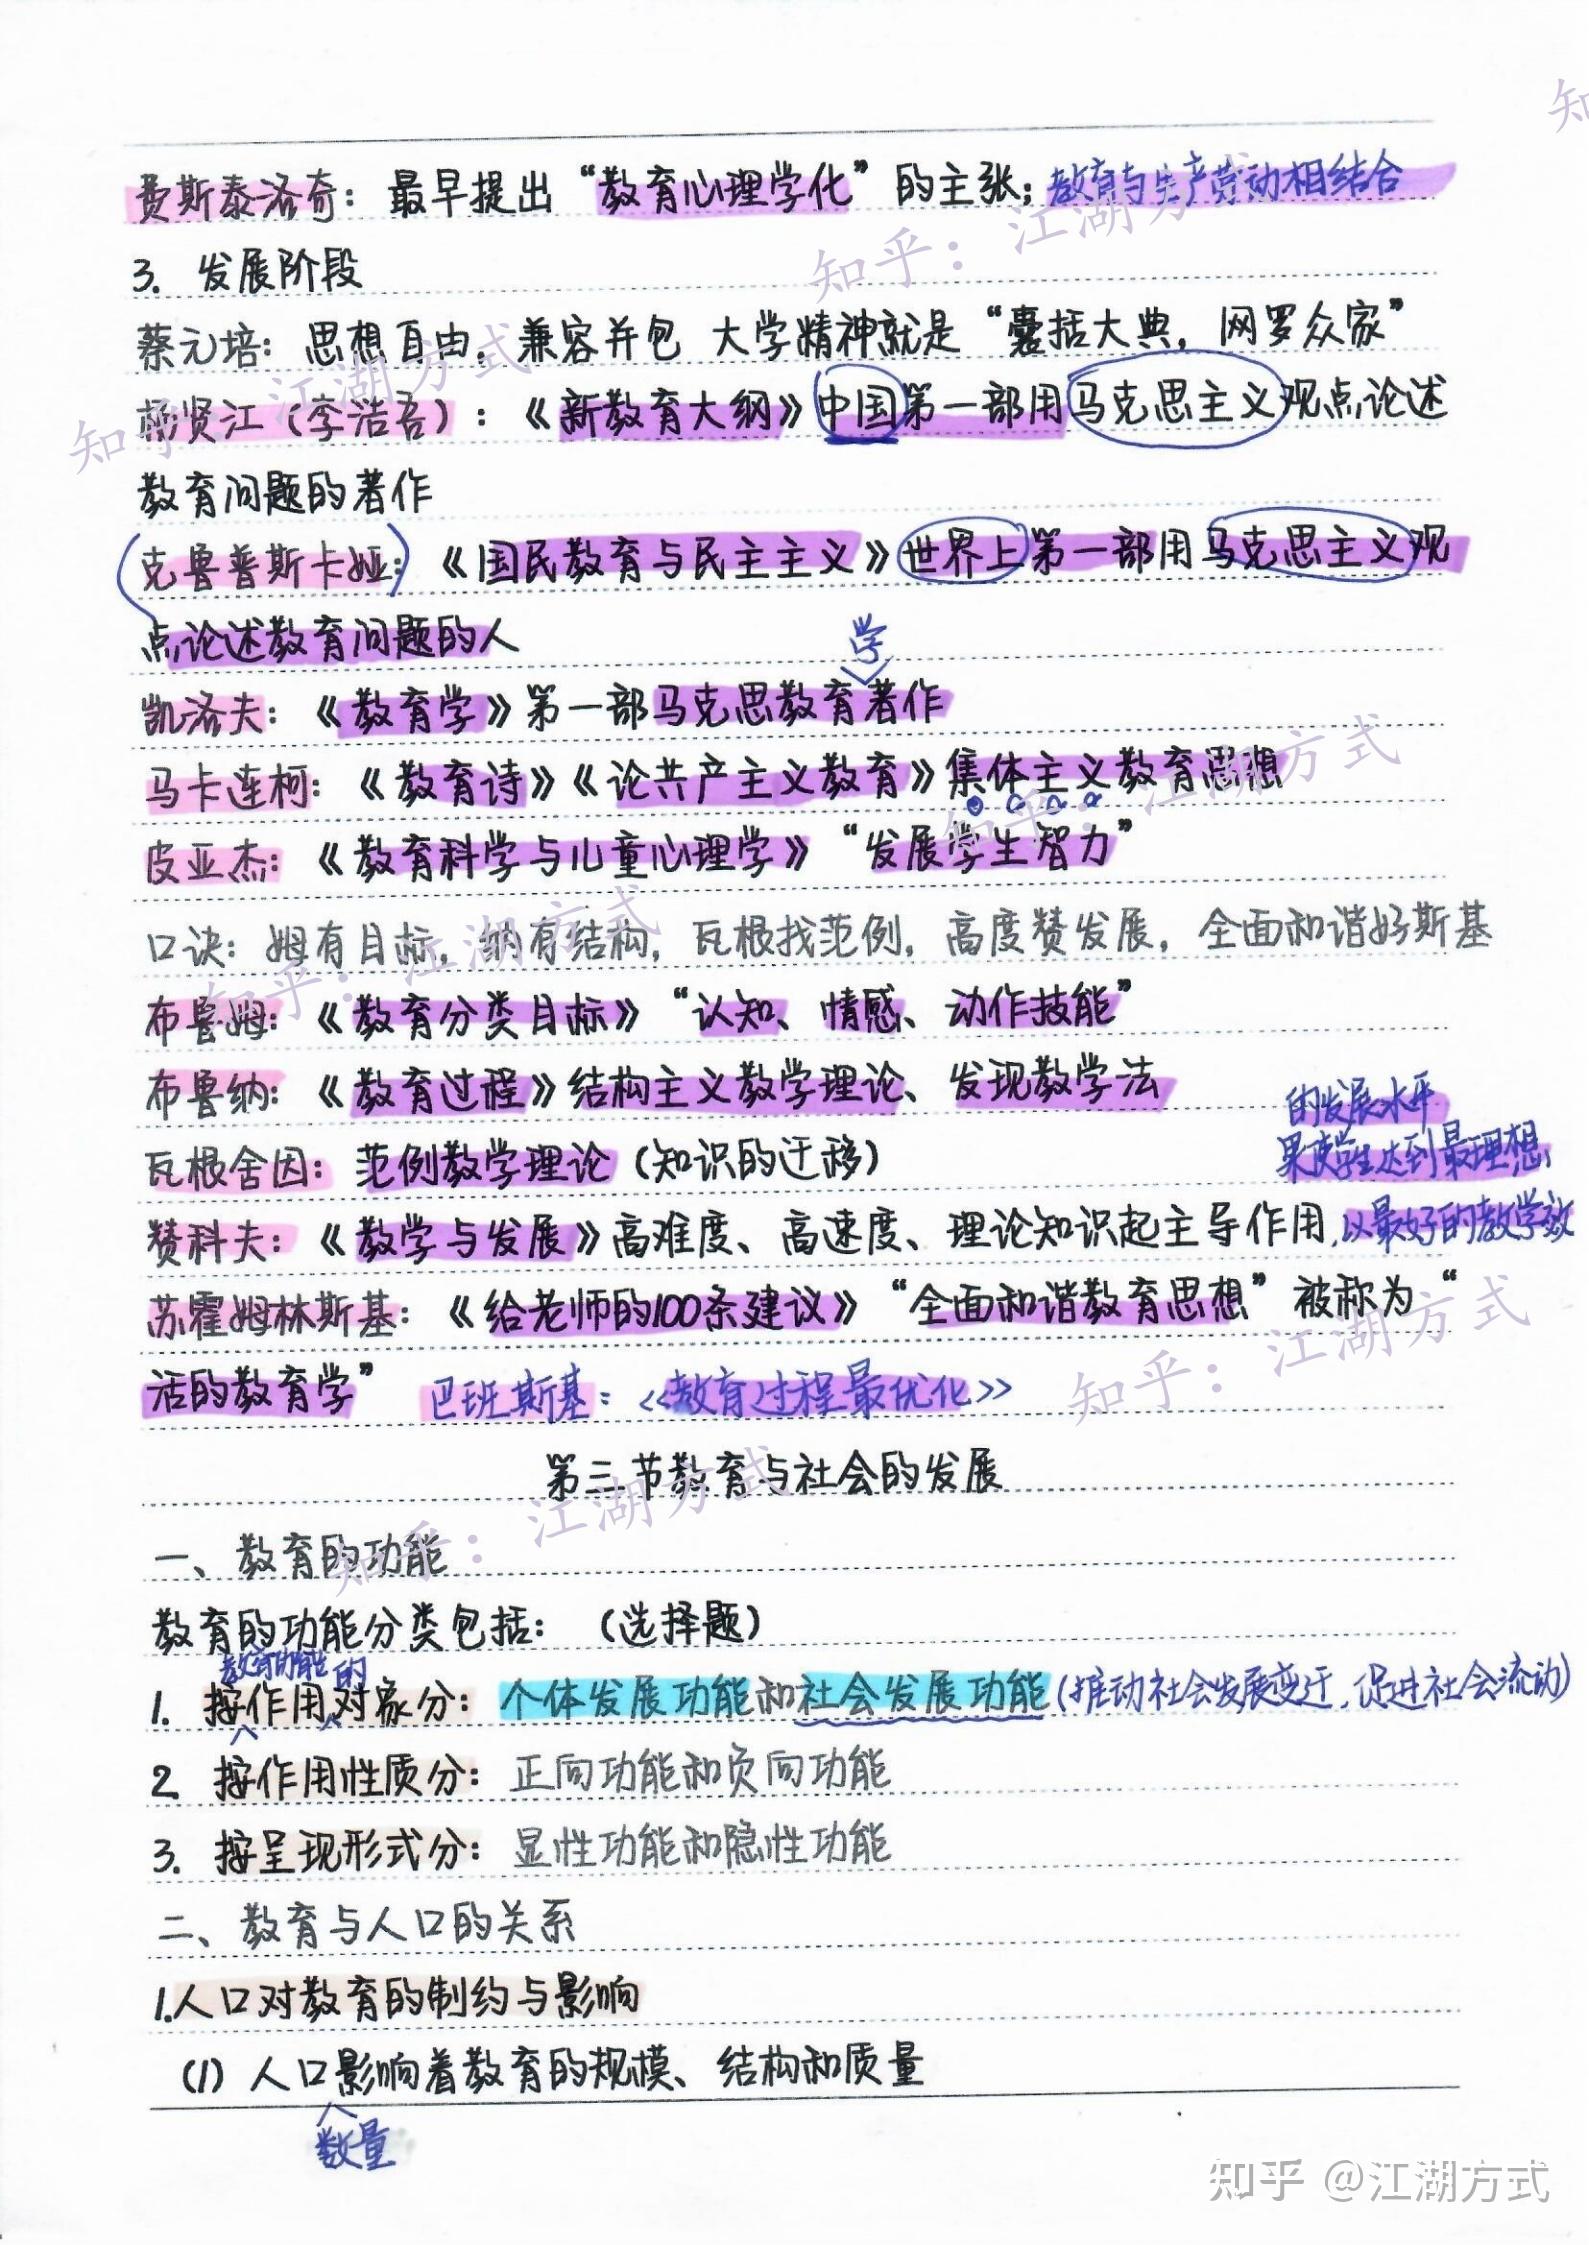 费斯泰洛奇：最早提出“教育心理学化”的主张；教育与生产劳动相结合
3. 发展阶段
蔡元培：思想自由，兼容并包 大学精神就是“囊括大典，网罗众家”
杨贤江（李浩吾）：《新教育大纲》中国第一部用马克思主义观点论述
教育问题的著作
克鲁普斯卡娅：《国民教育与民主主义》世界上第一部用马克思主义观
点论述教育问题的人
学
凯洛夫：《教育学》第一部马克思教育著作
马卡连柯：《教育诗》《论共产主义教育》集体主义教育思想
皮亚杰：《教育科学与儿童心理学》“发展学生智力”
口诀：姆有目标，纳有结构，瓦根找范例，高度赞发展，全面和谐好斯基
布鲁姆：《教育分类目标》“认知、情感、动作技能”
布鲁纳：《教育过程》结构主义教学理论、发现教学法
的发展水平
果使学生达到最理想
瓦根舍因：范例教学理论（知识的迁移）
赞科夫：《教学与发展》高难度、高速度、理论知识起主导作用，以最好的教学效
苏霍姆林斯基：《给老师的100条建议》“全面和谐教育思想”被称为“
活的教育学” 巴班斯基：《教育过程最优化》
第三节教育与社会的发展
一、教育的功能
教育的功能分类包括：（选择题）
教育功能的
1. 按作用对象分：个体发展功能和社会发展功能（推动社会发展变迁，促进社会流动）
2. 按作用性质分：正向功能和负向功能
3. 按呈现形式分：显性功能和隐性功能
二、教育与人口的关系
1.人口对教育的制约与影响
(1) 人口影响着教育的规模、结构和质量
数量
知乎 @江湖方式
知乎：江湖方式
知乎：江湖方式
知乎：江湖方式
知乎：江湖方式
知乎：江湖方式
知乎：江湖方式
知